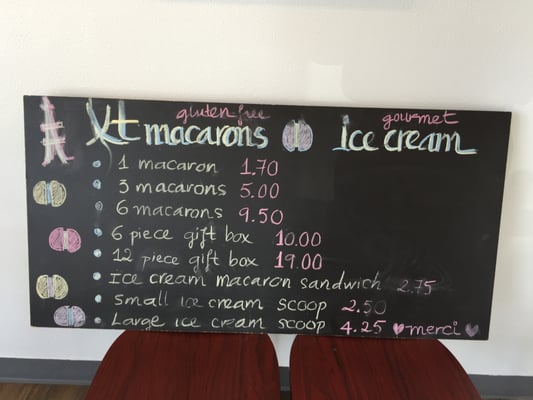 gluten free gourmet
Xt macarons Ice cream
1 macaron 1.70
3 macarons 5.00
6 macarons 9.50
6 piece gift box 10.00
12 piece gift box 19.00
Ice cream macaron sandwich 2.75
small ice cream scoop 2.50
Large ice cream scoop 4.25 merci